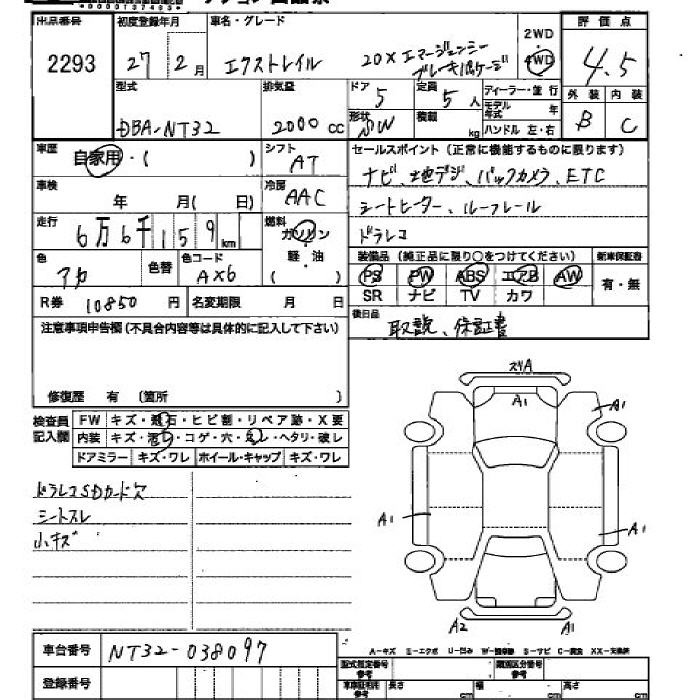 出品番号 初度登録年月 車名・グレード 2WD 評価点
2293 27 2月 エクストレイル 20X エマージェンシー
ブレーキパケージ 4WD 4.5
型式 排気量 ドア 定員 ディーラー・並行 外装 内装
DBA-NT32 2000 CC 5 5人 モデル年式 年 B C
形状 SW 積載 kg ハンドル 左・右
車歴 自家用・( ) シフト AT セールスポイント(正常に機能するものに限ります)
ナビ、地デジ、バックカメラ、ETC
車検 年 月( 日) 冷房 AAC
シートヒーター、ルーフレール
走行 6万6千159km 燃料 ガソリン・軽・油 ( )
ドラレコ
色 アカ 色替 色コード AX6
装備品(純正品に限り○をつけてください) 新車保証書
PS PW ABS エアB AW 有・無
SR ナビ TV カワ
R券 10850円 名変期限 月 日
後日品 取説、保証書
注意事項申告欄(不具合内容等は具体的に記入して下さい)
修復歴 有 (箇所 )
検査員記入欄 FW キズ・飛石・ヒビ割・リペア跡・X要
内装 キズ・汚レ・コゲ・穴・スレ・ヘタリ・破レ
ドアミラー キズ・ワレ ホイール・キャップ キズ・ワレ
A1
A1
ドラレコSDカード欠
シートスレ
小キズ
A1
A1
A2
A1
車台番号 NT32-038097
A-キズ E-エクボ U-凹み S-サビ C-腐食 XX-交換済
登録番号
型式指定番号 参考 類別区分番号 参考
長さ cm 幅 cm 高さ cm